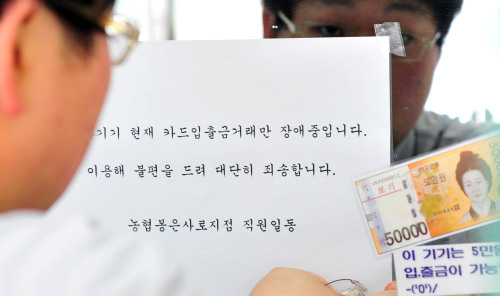 기기 현재 카드입출금거래만 장애중입니다.
이용해 불편을 드려 대단히 죄송합니다.
농협봉은사로지점 직원일동
보기
오만원
50000
이 기기는 5만원
입,출금이 가능
-('0')/